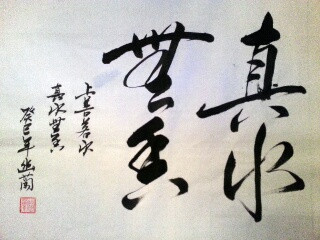 真水
無香
上善若水
真水無香
癸巳年幽蘭